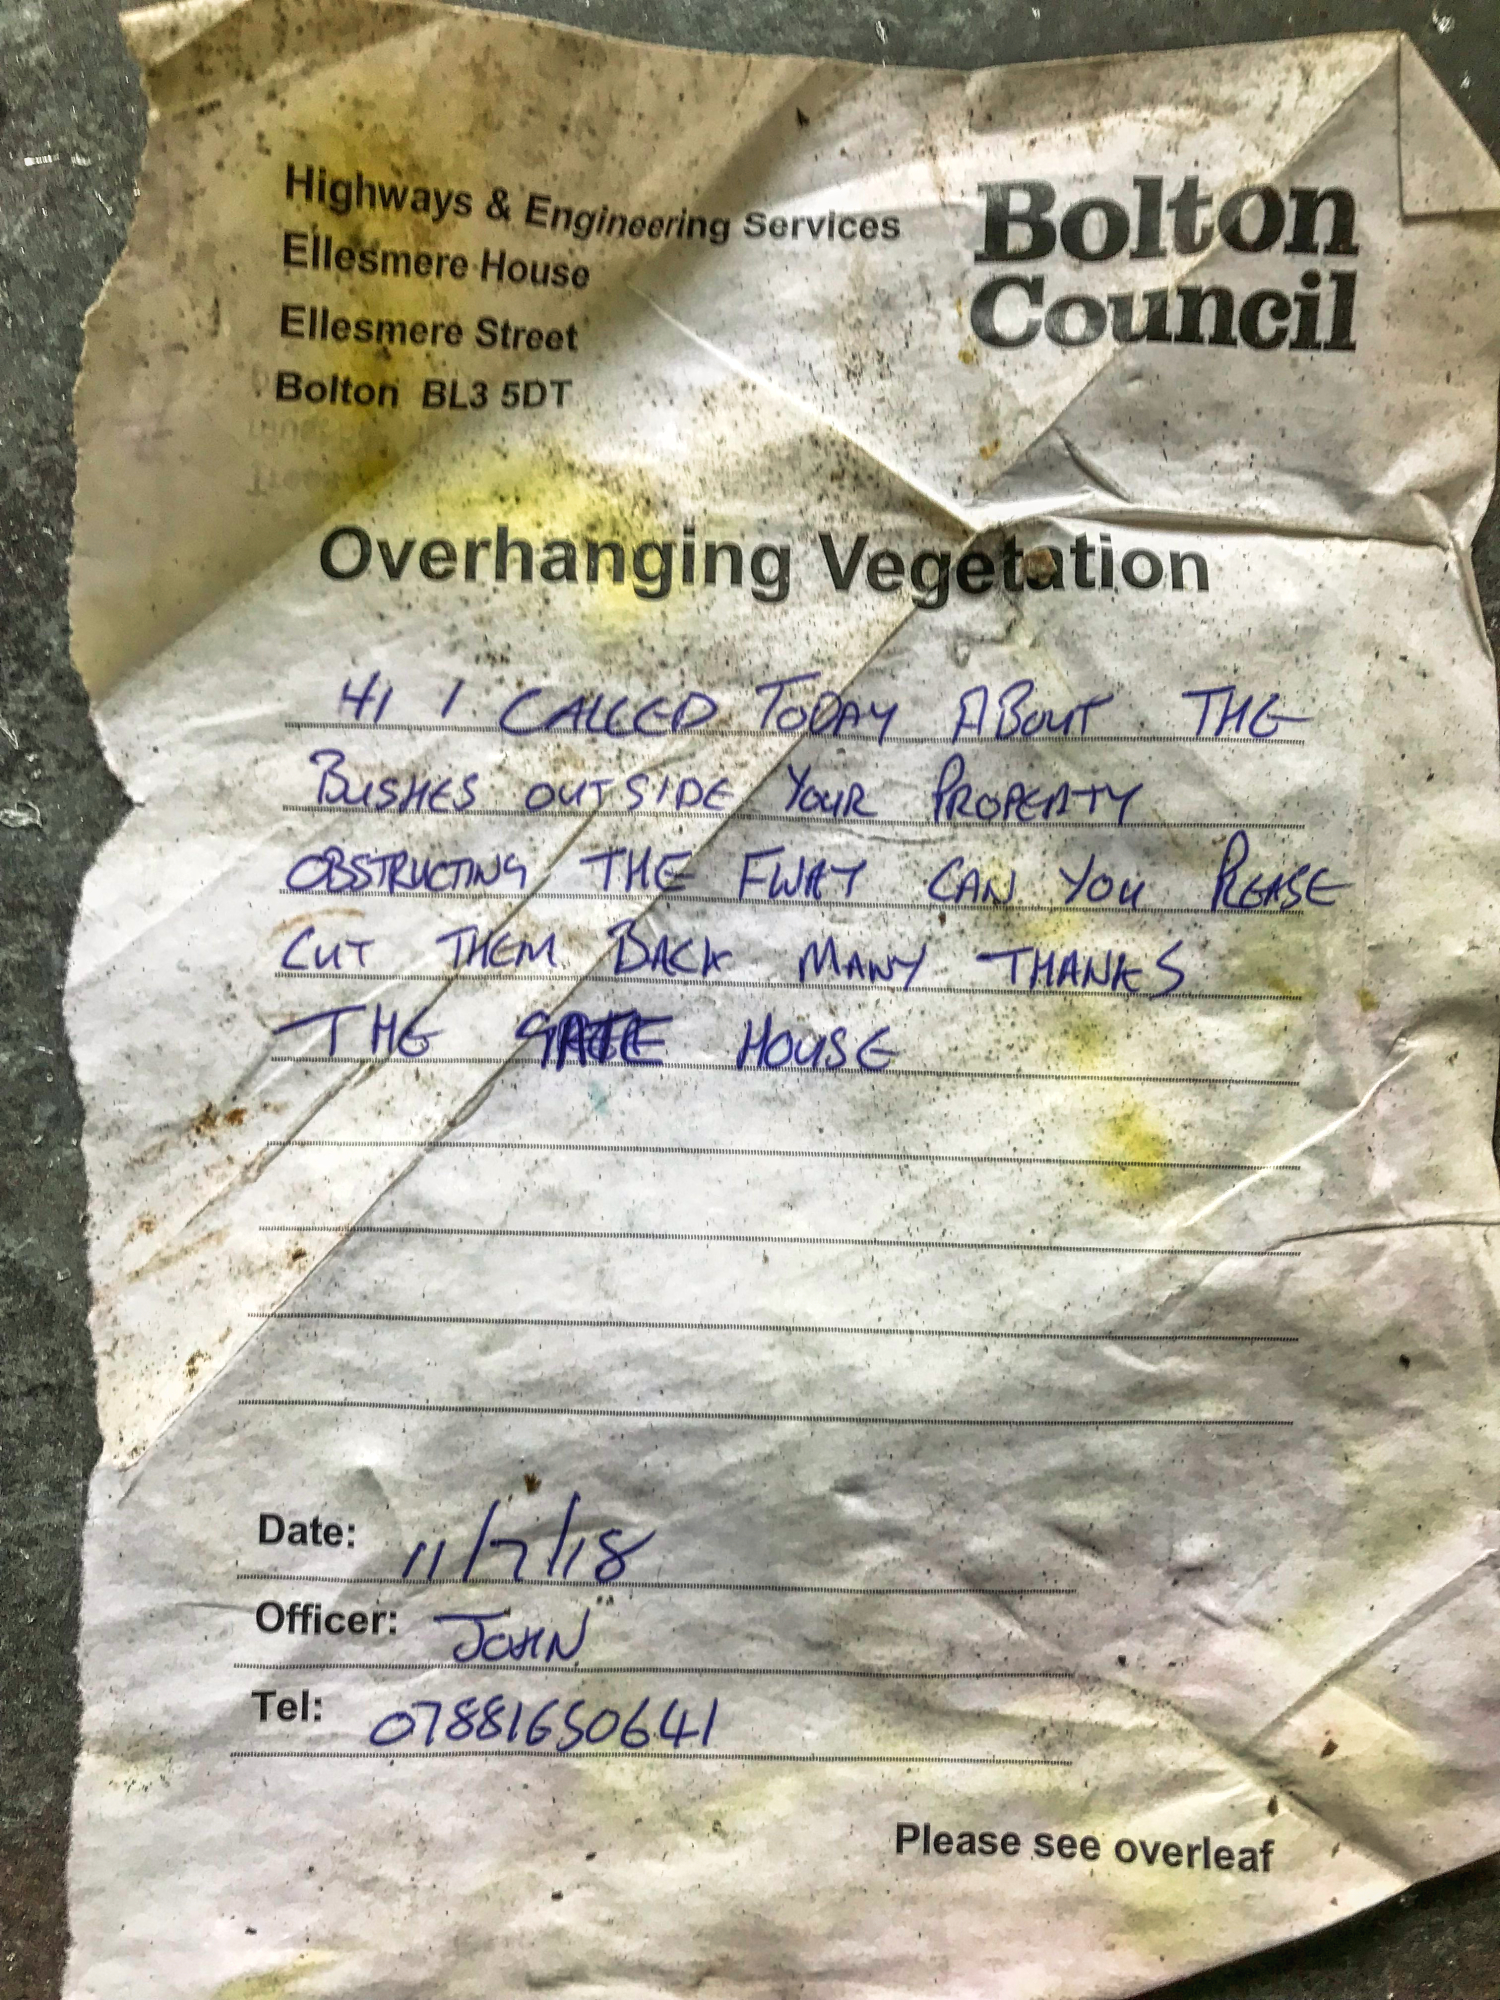 Highways & Engineering Services
Ellesmere House
Ellesmere Street
Bolton BL3 5DT
Bolton
Council
Overhanging Vegetation
HI I CALLED TODAY ABOUT THE
BUSHES OUTSIDE YOUR PROPERTY
OBSTRUCTING THE FWAY CAN YOU PLEASE
CUT THEM BACK MANY THANKS
THE GATE HOUSE
Date: 11/7/18
Officer: JOHN
Tel: 07881650641
Please see overleaf